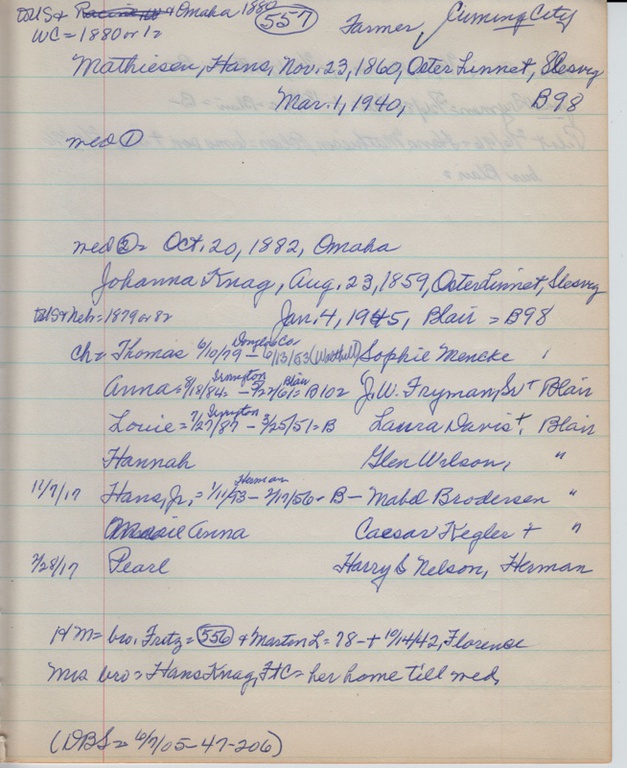 to US & Racine, W & Omaha 1880 557 Farmer, Cuming City
WC = 1880 or 12
Mathiesen, Hans, Nov. 23, 1860, Oster Linnet, Slesvig
Mar. 1, 1940, B98
med ①
med ②= Oct. 20, 1882, Omaha
Johanna Knag, Aug. 23, 1859, Oster Linnet, Slesvig
to US & Neb = 1879 or 82 Jan. 4, 1945, Blair = B98
Douglas Co
ch = Thomas 6/10/79 – 6/13/53 (Walthill) Sophie Mencke
Irvington Blair
Anna = 8/18/84 – 5/22/61 = B102 J.W. Fryman, Sr + Blair
Irvington
Louie = 7/27/87 – 3/25/51 = B Laura Davis +, Blair
Hannah Glen Wilson, "
Herman
11/7/17 Hans, Jr. = 1/11/93 – 2/17/56 – B – Mabel Brodersen "
Anna Caesar Kegler + "
2/28/17 Pearl Harry S Nelson, Herman
HM = bro. Fritz = 556 & Marten L = 78 – + 10/14/42, Florence
Mrs bro = Hans Knag, FtC = her home till med.
(DBS = 6/7/05 – 47 – 206)